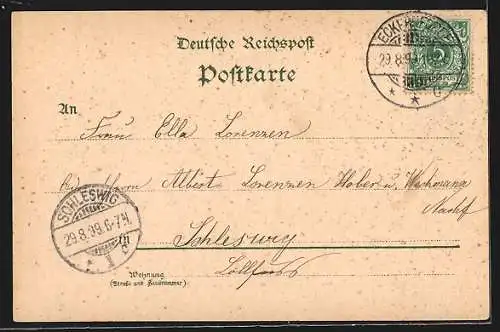 Deutsche Reichspost
Postkarte
ECKERNFÖRDE
29.8.99
5
An
Frau Ella Lorenzen
Albert Lorenzen
SCHLESWIG
29.8.99.6-7N.
In Schleswig
Wohnung
(Straße und Hausnummer)